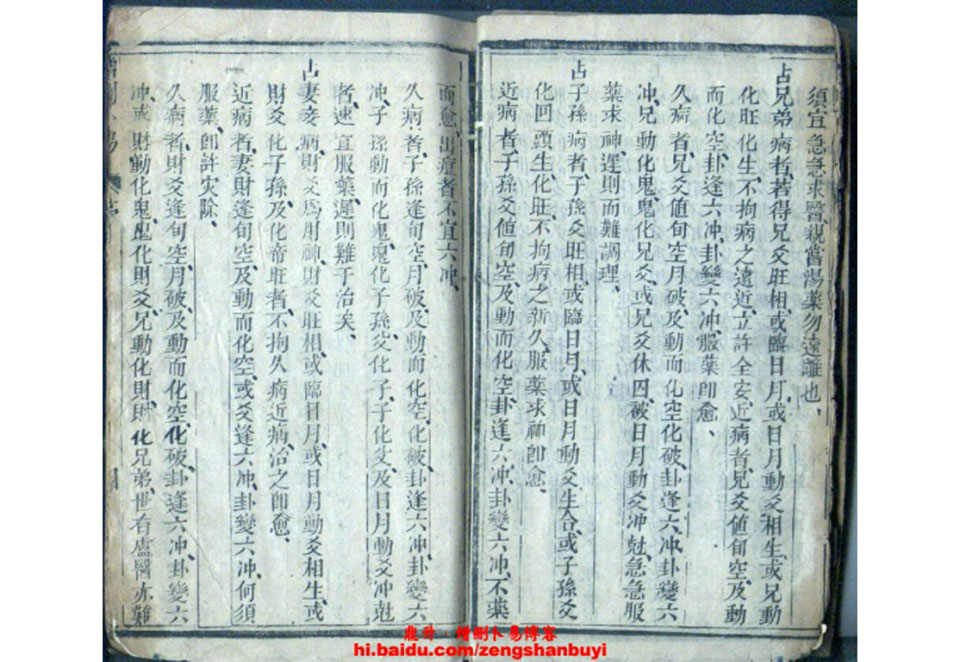 須宜急急求醫、親嘗湯藥勿遠離也、
占兄弟病者、若得兄爻旺相、或臨日月、或日月動爻相生、或兄動
化旺化生、不拘病之遠近、立許全安、近病者、兄爻值旬空、及動
而化空、卦逢六冲、卦變六冲、服藥即愈、
久病者、兄爻值旬空月破、及動而化空化破、卦逢六冲、卦變六
冲、兄動化鬼、鬼化兄爻、或兄爻休囚、被日月動爻冲尅、急急服
藥求神、遲則而難調理、
占子孫病者、子孫爻旺相、或臨日月、或日月動爻生合、或子孫爻
化回頭生、化旺、不拘病之新久、服藥求神即愈、
近病者、子孫爻值旬空、及動而化空、卦逢六冲、卦變六冲、不藥
而愈、出痘者不宜六冲、
久病者、子孫逢旬空、月破、及動而化空、化破、卦逢六冲、卦變六
冲、子孫動而化鬼、鬼化子孫、父化子、子化父、及日月動爻冲尅
者、速宜服藥、遲則難于治矣、
占妻妾病、財爻為用神、財爻旺相、或臨日月、或日月動爻相生、或
財爻化子孫、及化帝旺者、不拘久病近病、治之即愈、
近病者、妻財逢旬空、及動而化空、或爻逢六冲、卦變六冲、何須
服藥、即許灾除、
久病者、財爻逢旬空、月破、及動而化空、化破、卦逢六冲、卦變六
冲、或財動化鬼、鬼化財爻、兄動化財、財化兄弟、世有盧醫亦難
鼎升·增刪卜易博客
hi.baidu.com/zengshanbuyi